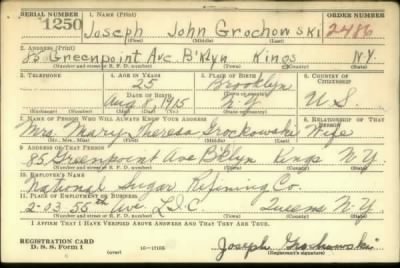 SERIAL NUMBER 1. NAME (Print) ORDER NUMBER
1250 Joseph John Grochowski 2486
(First) (Middle) (Last)
2. ADDRESS (Print)
85 Greenpoint Ave B'klyn Kings N.Y.
(Number and street or R. F. D. number) (Town) (County) (State)
3. TELEPHONE 4. AGE IN YEARS 5. PLACE OF BIRTH 6. COUNTRY OF CITIZENSHIP
25 Brooklyn
DATE OF BIRTH (Town or county)
Aug 8, 1915 N.Y. U.S.
(Exchange) (Number) (Mo.) (Day) (Yr.) (State or country)
7. NAME OF PERSON WHO WILL ALWAYS KNOW YOUR ADDRESS 8. RELATIONSHIP OF THAT PERSON
Mrs. Mary Theresa Grochowski Wife
(Mr., Mrs., Miss) (First) (Middle) (Last)
9. ADDRESS OF THAT PERSON
85 Greenpoint Ave Bklyn Kings N.Y.
(Number and street or R. F. D. number) (Town) (County) (State)
10. EMPLOYER'S NAME
National Sugar Refining Co.
11. PLACE OF EMPLOYMENT OR BUSINESS
2-03 55th Ave L.I.C. Queens N.Y.
(Number and street or R. F. D. number) (Town) (County) (State)
I AFFIRM THAT I HAVE VERIFIED ABOVE ANSWERS AND THAT THEY ARE TRUE.
REGISTRATION CARD
D. S. S. Form 1 16-17105 Joseph Grochowski
(Registrant's signature)